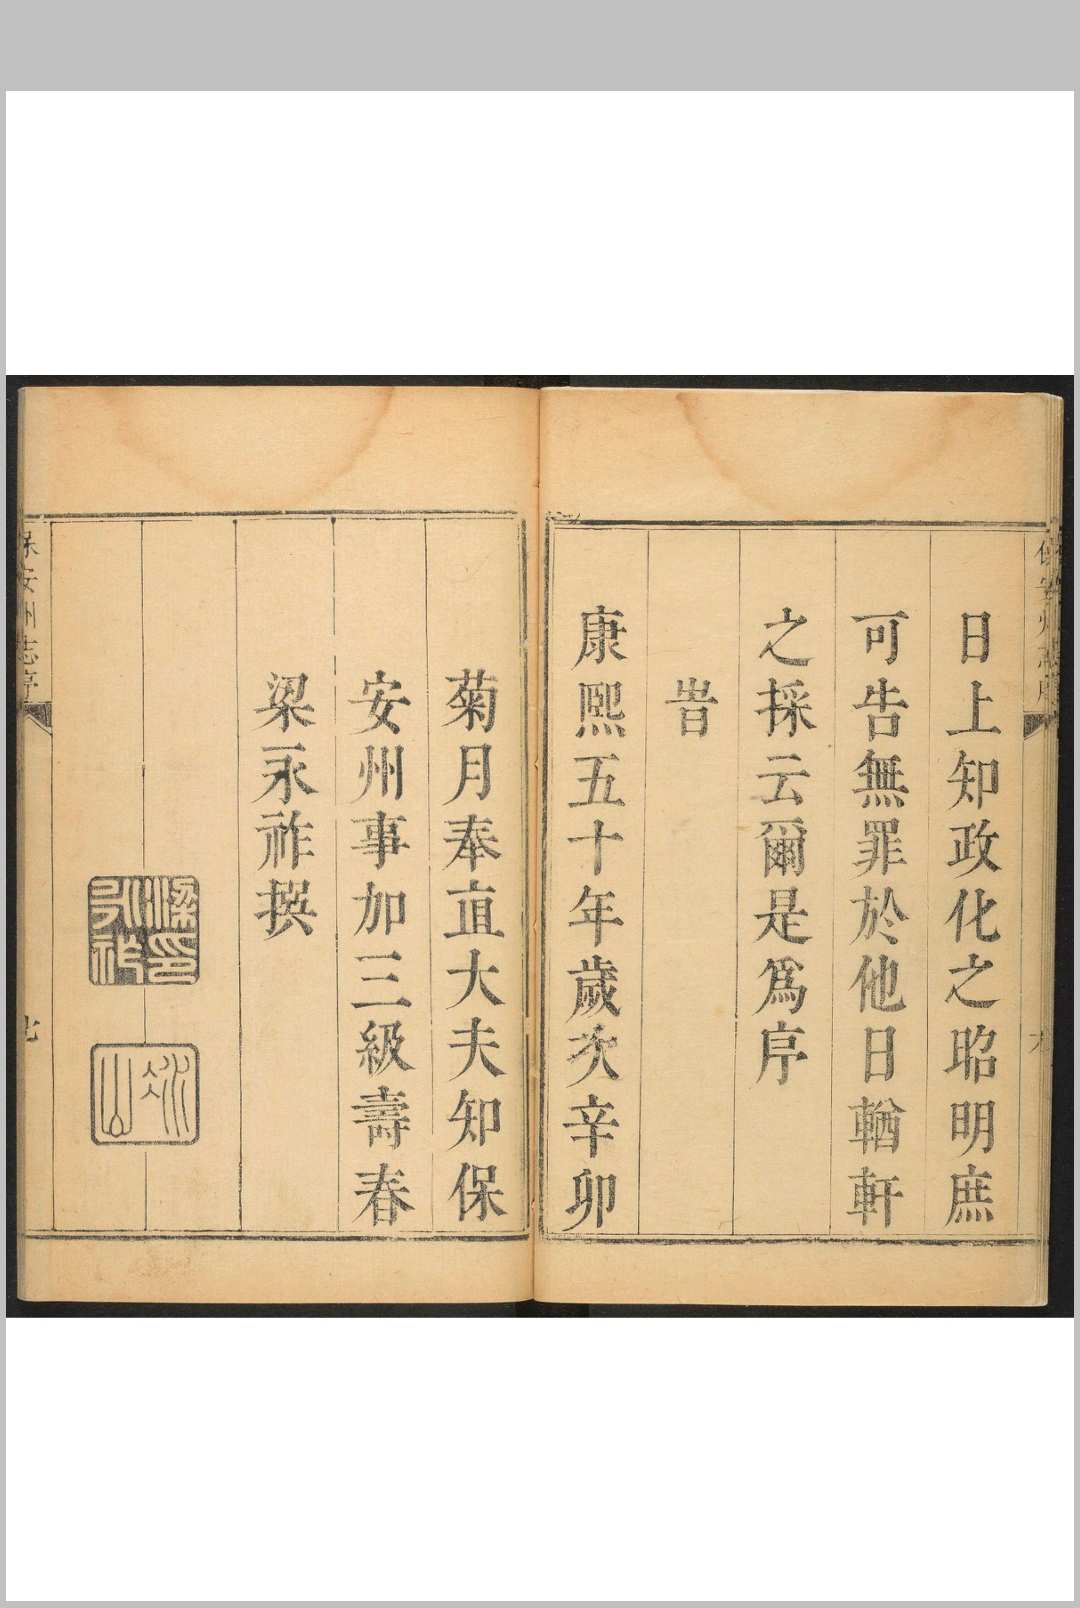 日上知政化之昭明庶
可告無罪於他日輶軒
之採云爾是爲序
旹
康熙五十年歲次辛卯
菊月奉直大夫知保
安州事加三級壽春
梁永祚撰
梁印永祚
冰山
保安州志序
七